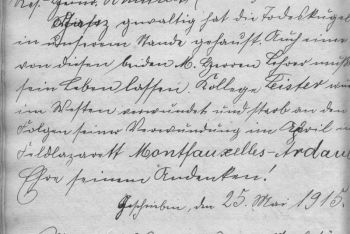 gewaltig hat die Todeskugel
in unserem Stande gehaust. Auch einer
von diesen beiden H. Herren Lehrer mußte
sein Leben lassen. Kollege Leister
im Westen verwundet und starb an den
Folgen seiner Verwundung im April
Feldlazarett Montfauxelles-Ardau
Ehre seinem Andenken!
Geschrieben, den 25. Mai 1915.